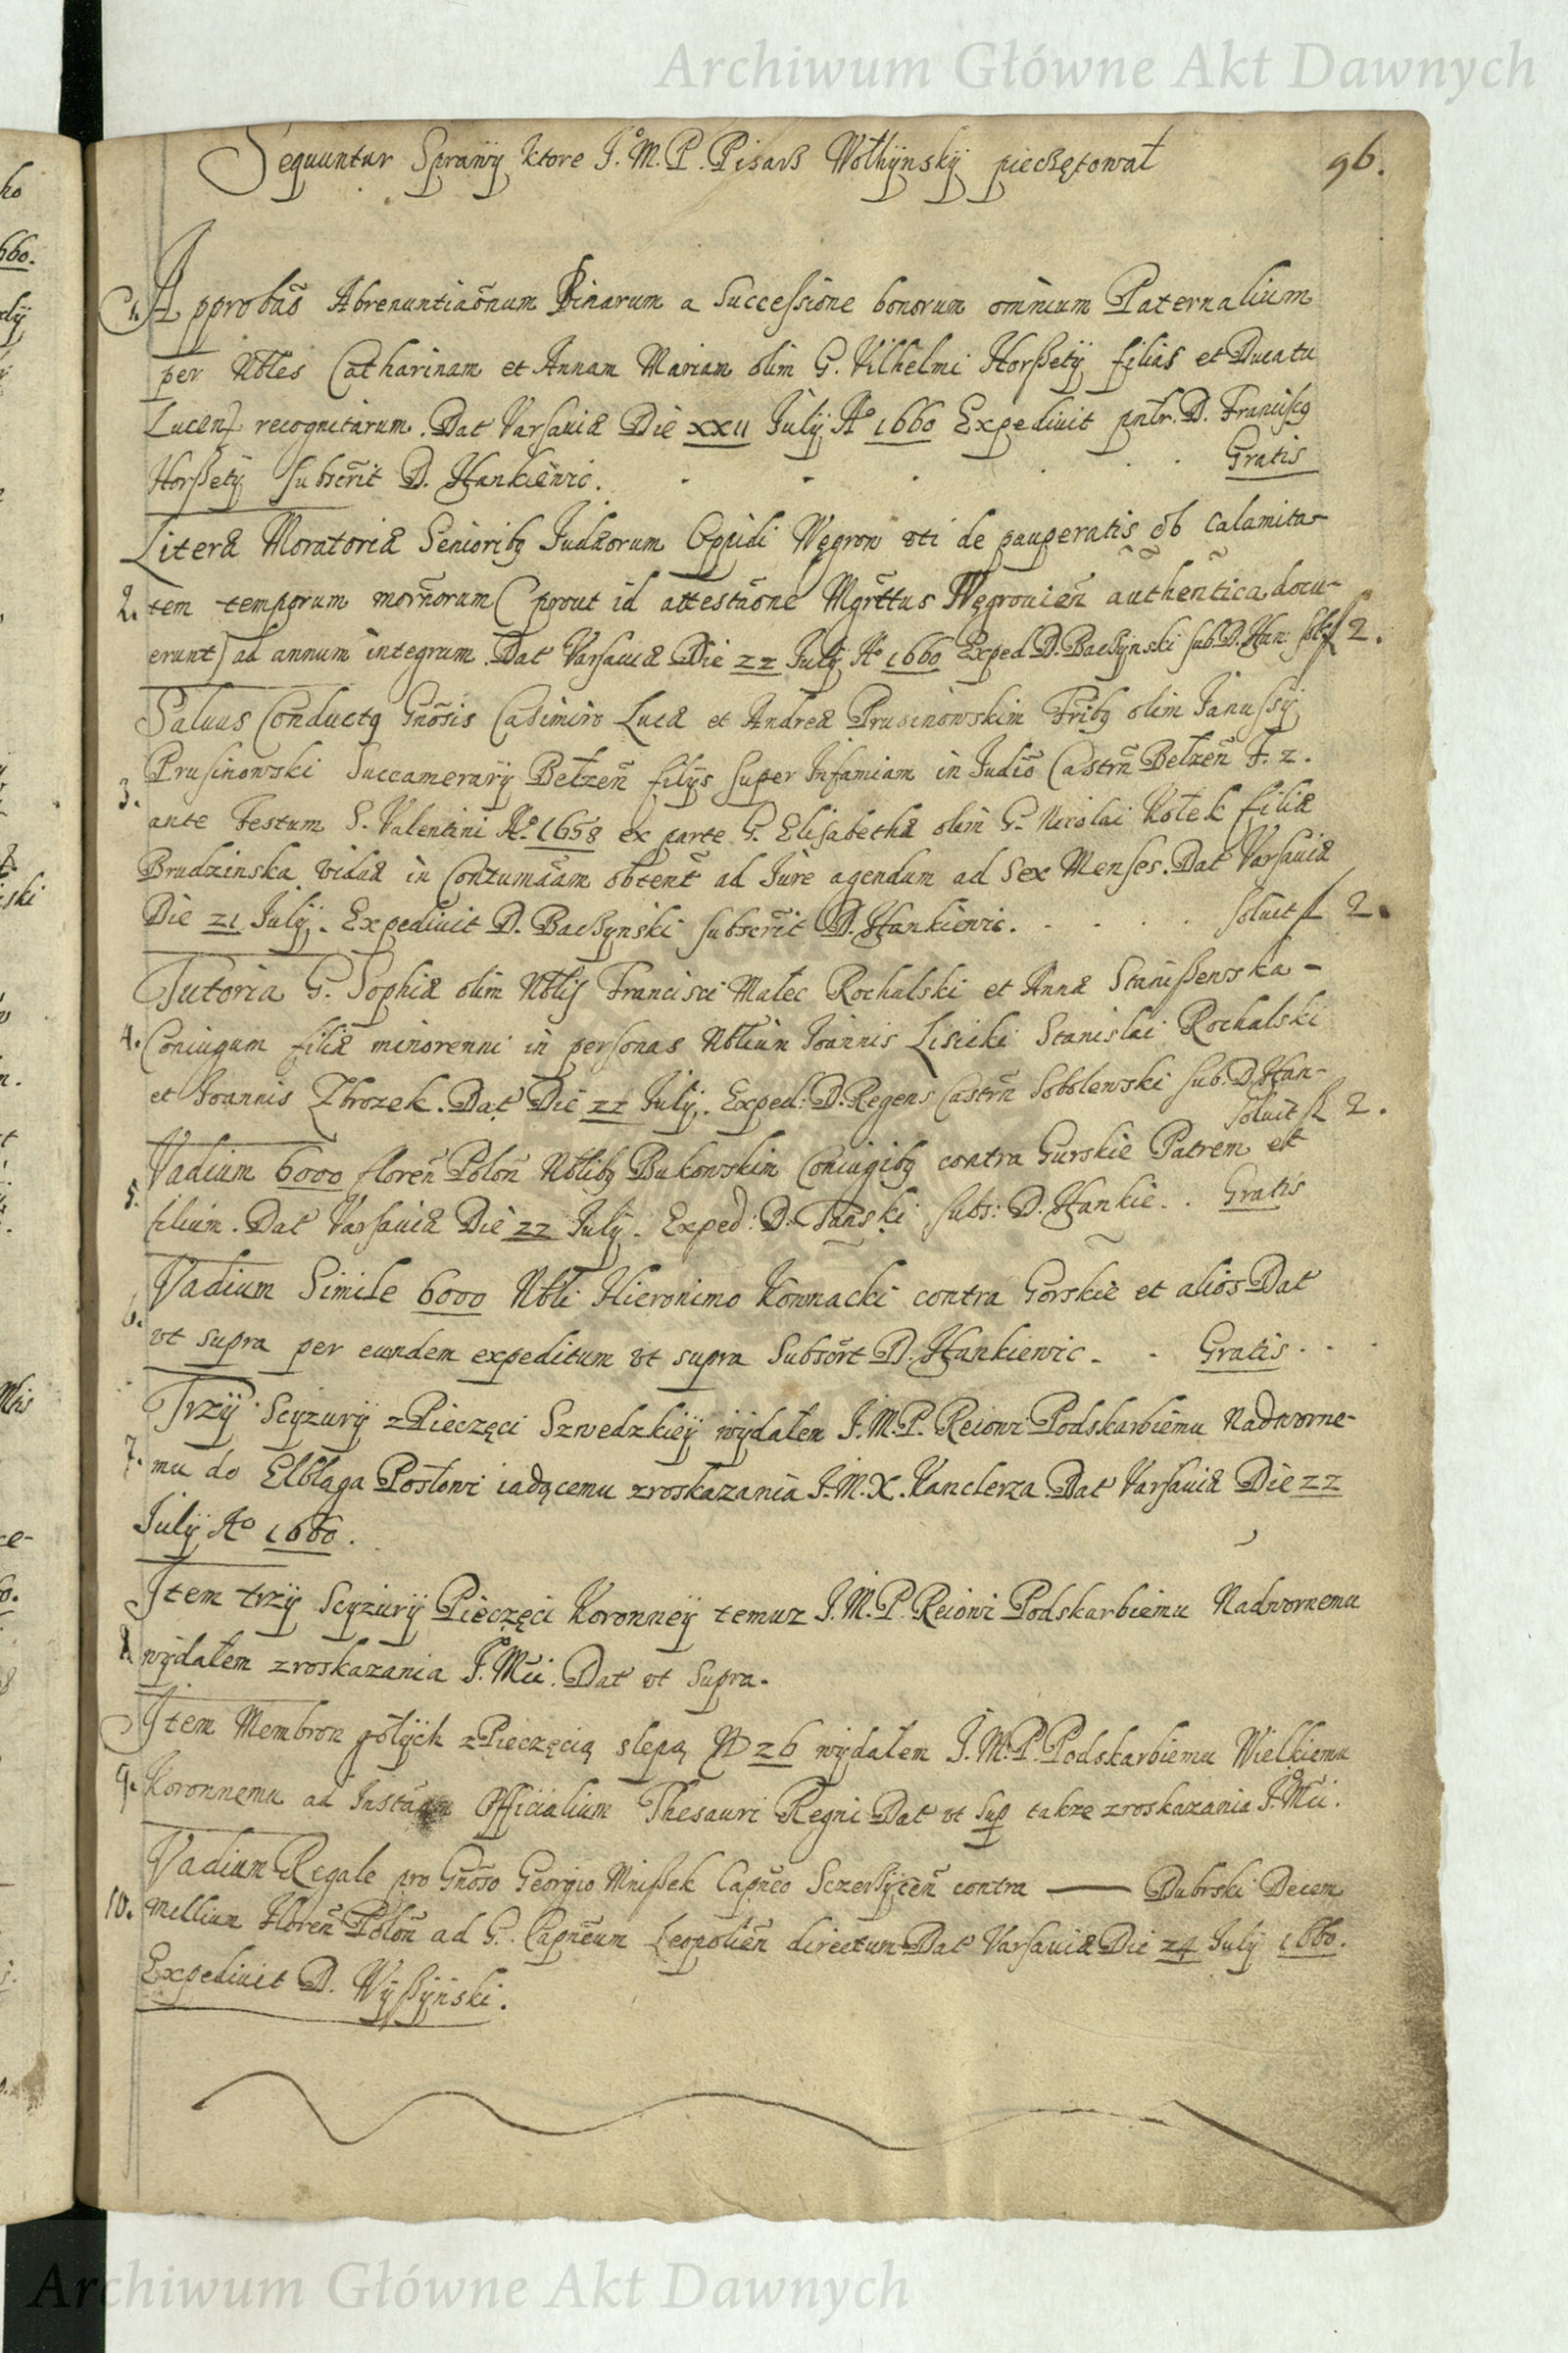 Archiwum Główne Akt Dawnych
Sequuntur Sprawÿ ktore J.M.P. Pisarß Wołhÿnskÿ piecżętował
96.
1. Approbaõ Abrenuntiaõnum Binarum a Successione bonorum omnium Paternalium
per Nbles Catharinam et Annam Mariam olim G. Vilhelmi Horßetÿ filias et Ducatu
Lucen recognitarum. Dat Varsauiæ Die xxii Julÿ Aº 1660 Expediuit pntr. D. Franciscq
Horßetÿ subscrit D. Hankiewic. Gratis
Literæ Moratoriæ Senioribq Judæorum Oppidi Węgrow vti de pauperatis ob calamita-
2. tem temporum mornorum (prout id attestaõne Mgrttus Węgrouien authentica docu-
erunt) ad annum integrum. Dat Varsauiæ Die 22 Julÿ Aº 1660 Exped D. Bacżÿnski sub D. Han: sol fl 2.
Saluus Conductq Gnosis Casimiro Lucæ et Andreæ Prusinowskim Fribq olim Janussÿ
Prusinowski Succamerarÿ Bełzen filÿs super Infamiam in Judio Castrn Bełzen F. 2.
3.
ante Festum S. Valentini Aº 1658 ex parte G. Elisabethæ olim G. Nicolai Kołek filiæ
Brudzinska viduæ in Contumaam obtent ad Jure agendum ad Sex Menses. Dat Varsauiæ
Die 21 Julÿ. Expediuit D. Bacżÿnski subscrit D. Hankiewic. soluit fl 2.
Tutoria G. Sophiæ olim Nblis Francisci Malec Rochalski et Annæ Stanißewska-
4. Coniugum filiæ minorenni in personas Nblium Joannis Lisicki Stanislai Rochalski
et Joannis Zbrozek. Dat Die 22 Julÿ. Exped: D. Regens Castrn Sobolewski sub. D. Han-
soluit fl 2.
Vadium 6000 floren Polon Nblibq Bukowskim Coniugibq contra Gurskie Patrem et
5. filium. Dat Varsauiæ Die 22 Julÿ. Exped: D. Tański subs: D. Hankie. Gratis
Vadium Simile 6000 Nbli Hieronimo Kownacki contra Gorskie et alios Dat
6. vt supra per eundem expeditum vt supra Subscrt D. Hankiewic. Gratis
Trzÿ Scÿzurÿ z Pieczęci Szwedzkieÿ wÿdałem J.M.P. Reiowi Podskarbiemu Nadworne-
7. mu do Elbląga Posłowi iadącemu zroskazania J.M.X. Kanclerza. Dat Varsauiæ Die 22
Julÿ Aº 1660.
Item trzÿ Scÿzurÿ Pieczęci Koronneÿ temuz J.M.P. Reiowi Podskarbiemu Nadwornemu
8 wÿdałem zroskazania J. Mci. Dat vt supra.
Item Membron gołÿch z Pieczęcią slepą N 26 wÿdałem J.M.P. Podskarbiemu Wielkiemu
9. Koronnemu ad Officialium Thesauri Regni Dat vt sup takze zroskazania J. Mci.
Vadium Regale pro Gnoso Georgio Mnißek Capneo Sczerßÿcen contra —— Dubrski Decem
10. Millium Floren Polon ad G. Capneum Leopolien directum Dat Varsauiæ Die 24 Julÿ 1660.
Expediuit D. Wÿßÿński.
Archiwum Główne Akt Dawnych